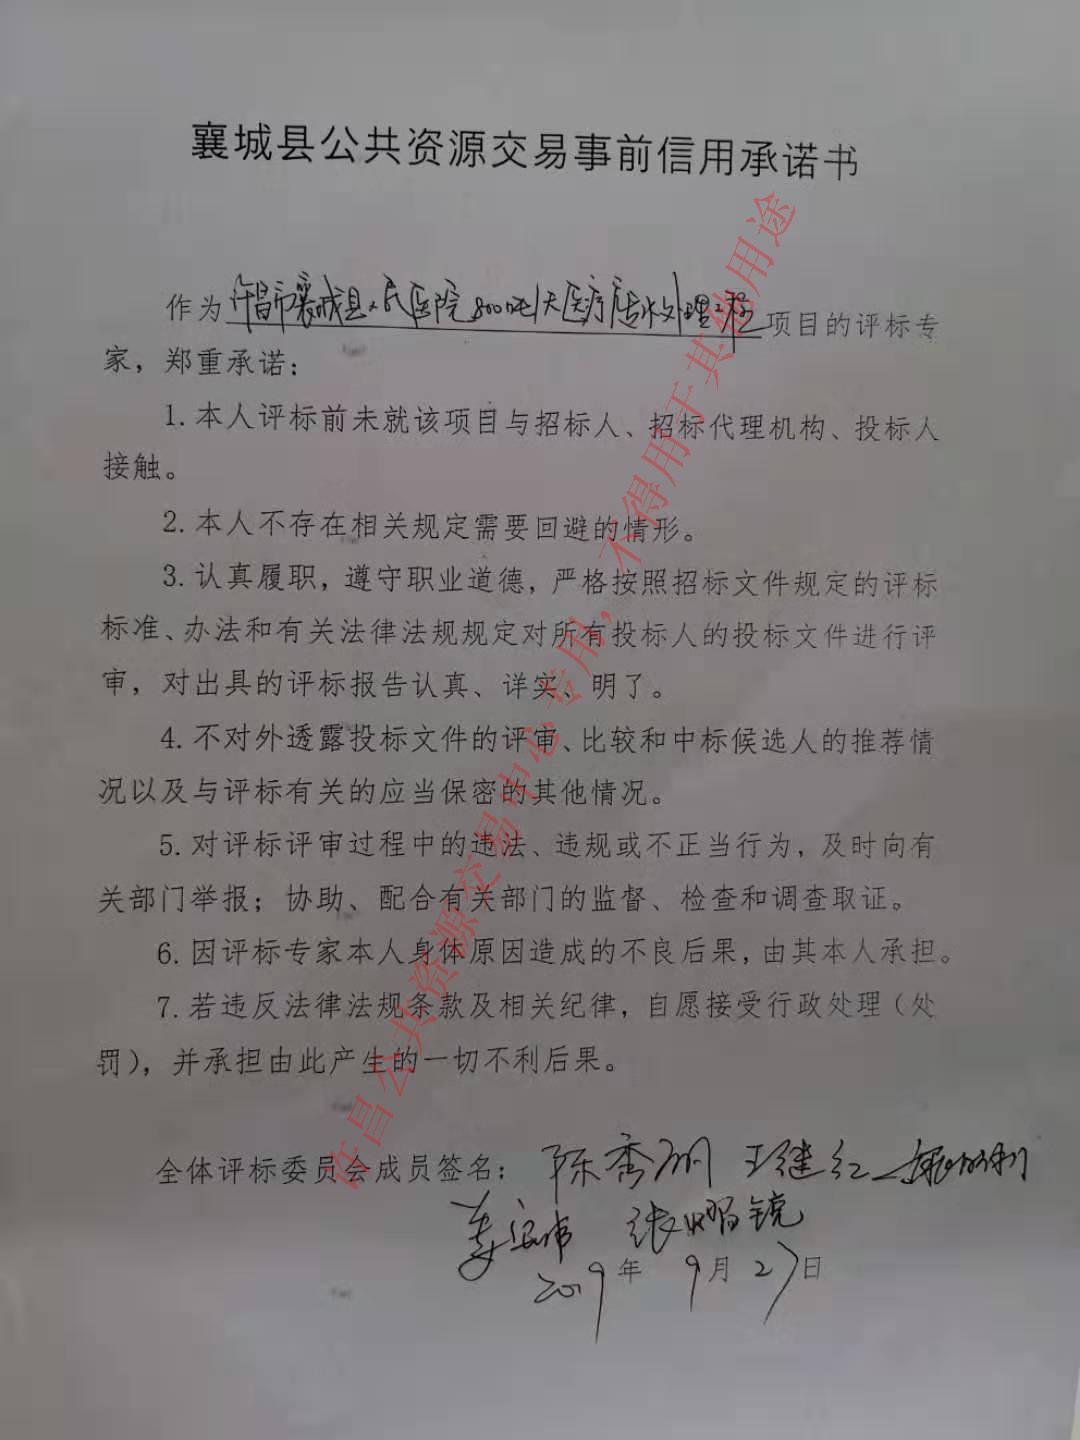 襄城县公共资源交易事前信用承诺书
作为许昌市襄城县人民医院800吨/天医疗废水处理工程项目的评标专
家，郑重承诺：
1.本人评标前未就该项目与招标人、招标代理机构、投标人
接触。
2.本人不存在相关规定需要回避的情形。
3.认真履职，遵守职业道德，严格按照招标文件规定的评标
标准、办法和有关法律法规规定对所有投标人的投标文件进行评
审，对出具的评标报告认真、详实、明了。
4.不对外透露投标文件的评审、比较和中标候选人的推荐情
况以及与评标有关的应当保密的其他情况。
5.对评标评审过程中的违法、违规或不正当行为，及时向有
关部门举报；协助、配合有关部门的监督、检查和调查取证。
6.因评标专家本人身体原因造成的不良后果，由其本人承担。
7.若违反法律法规条款及相关纪律，自愿接受行政处理（处
罚），并承担由此产生的一切不利后果。
全体评标委员会成员签名：陈秀丽 王继红
2019年9月27日
许昌公共资源交易中心专用，不得用于其他用途